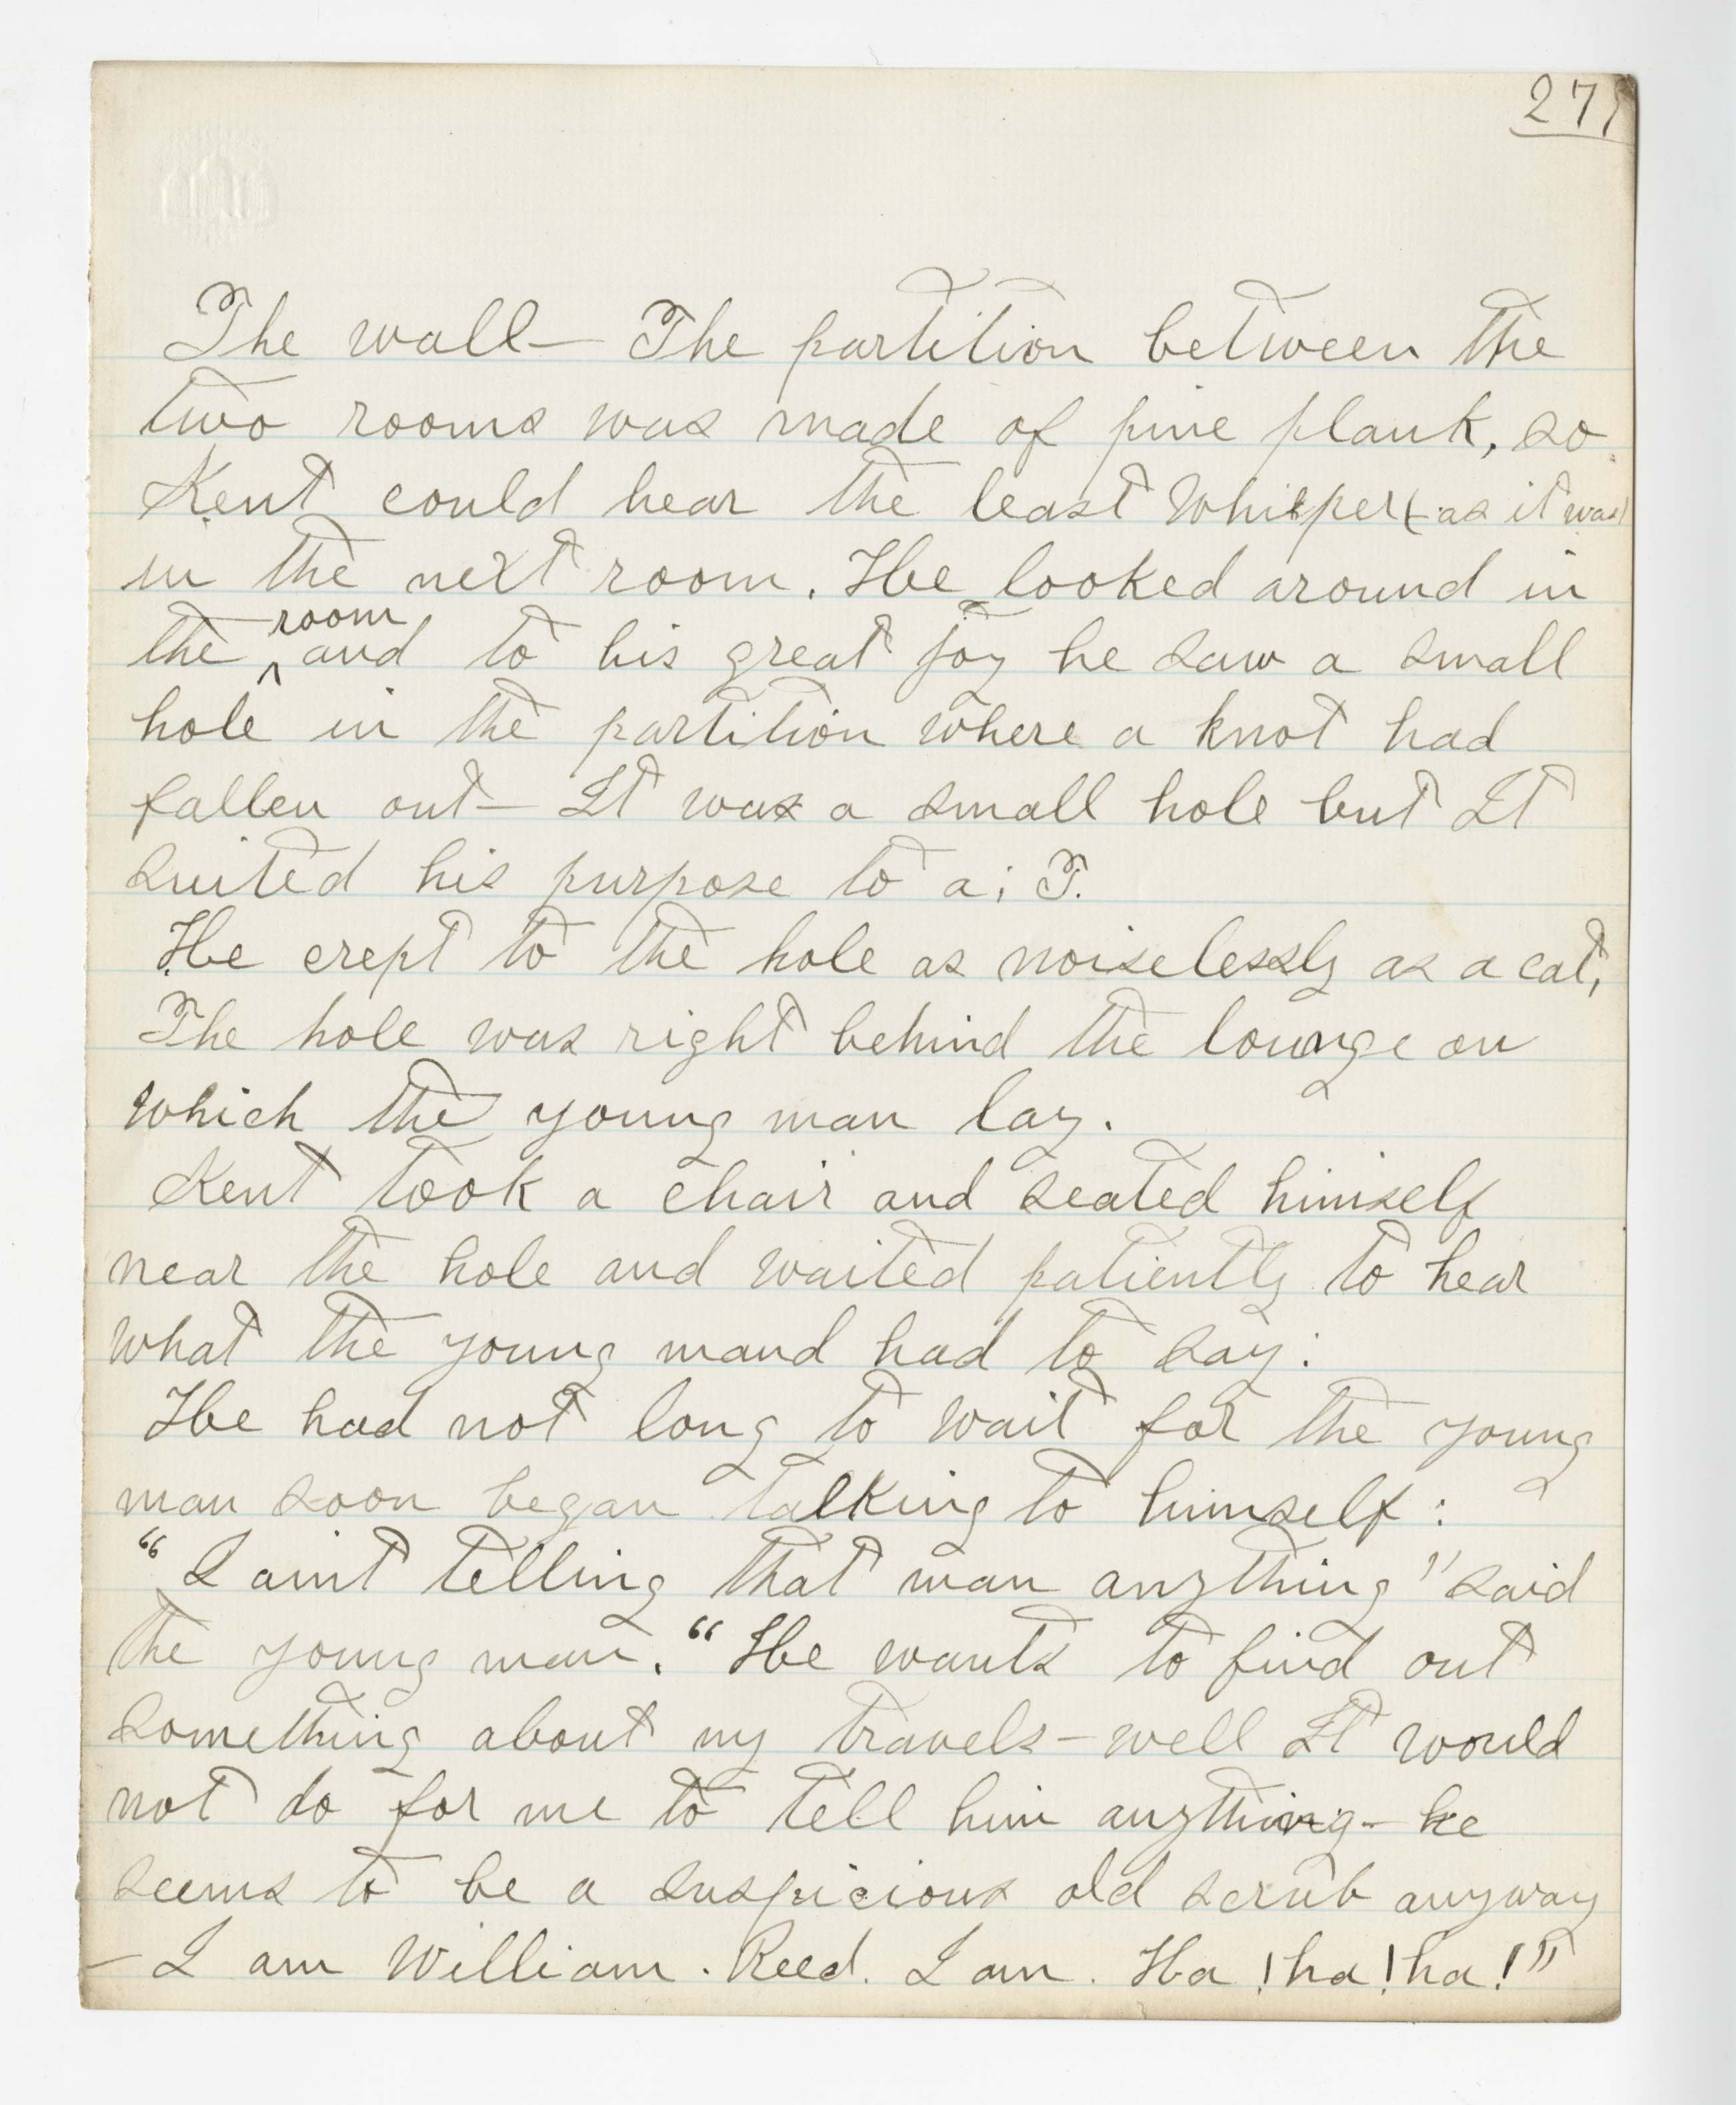 277
The wall— The partition between the
two rooms was made of pine plank, so
Kent could hear the least Whisper (as it was)
in the next room. He looked around in
the ^room and to his great joy he saw a small
hole in the partition where a knot had
fallen out— It was a small hole but It
suited his purpose to a; T.
He crept to the hole as noiselessly as a cat,
The hole was right behind the lounge on
which the young man lay.
Kent took a chair and seated himself
near the hole and waited patiently to hear
what the young mand had to say:
He had not long to wait for the young
man soon began talking to himself:
"I aint telling that man anything" said
the young man. "He wants to find out
something about my travels—well It would
not do for me to tell him anything—he
seems to be a suspicious old scrub anyway
—I am William. Reed. I am. Ha! ha! ha!"